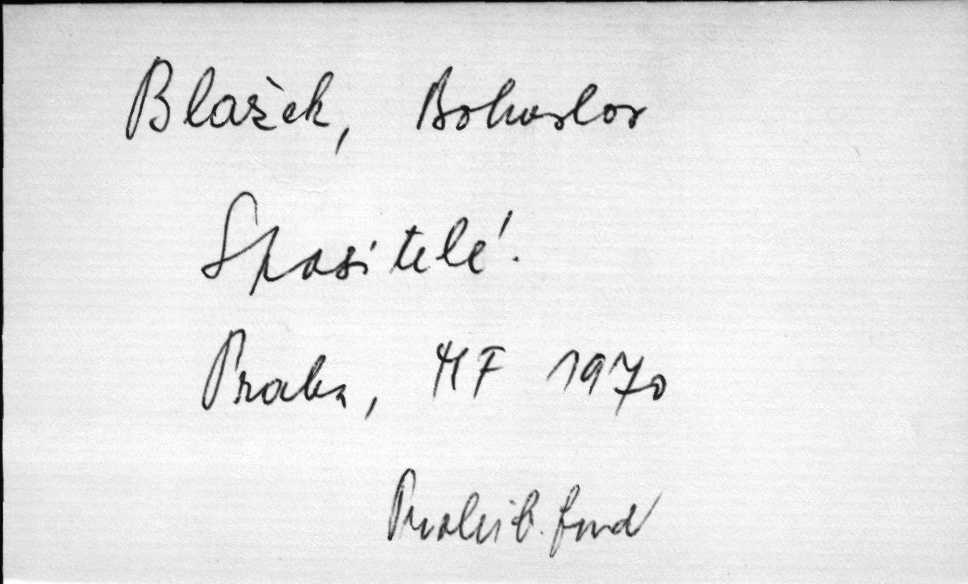 Blažek, Bohuslav
Spasitelé.
Praha, MF 1970
Prohib. fond